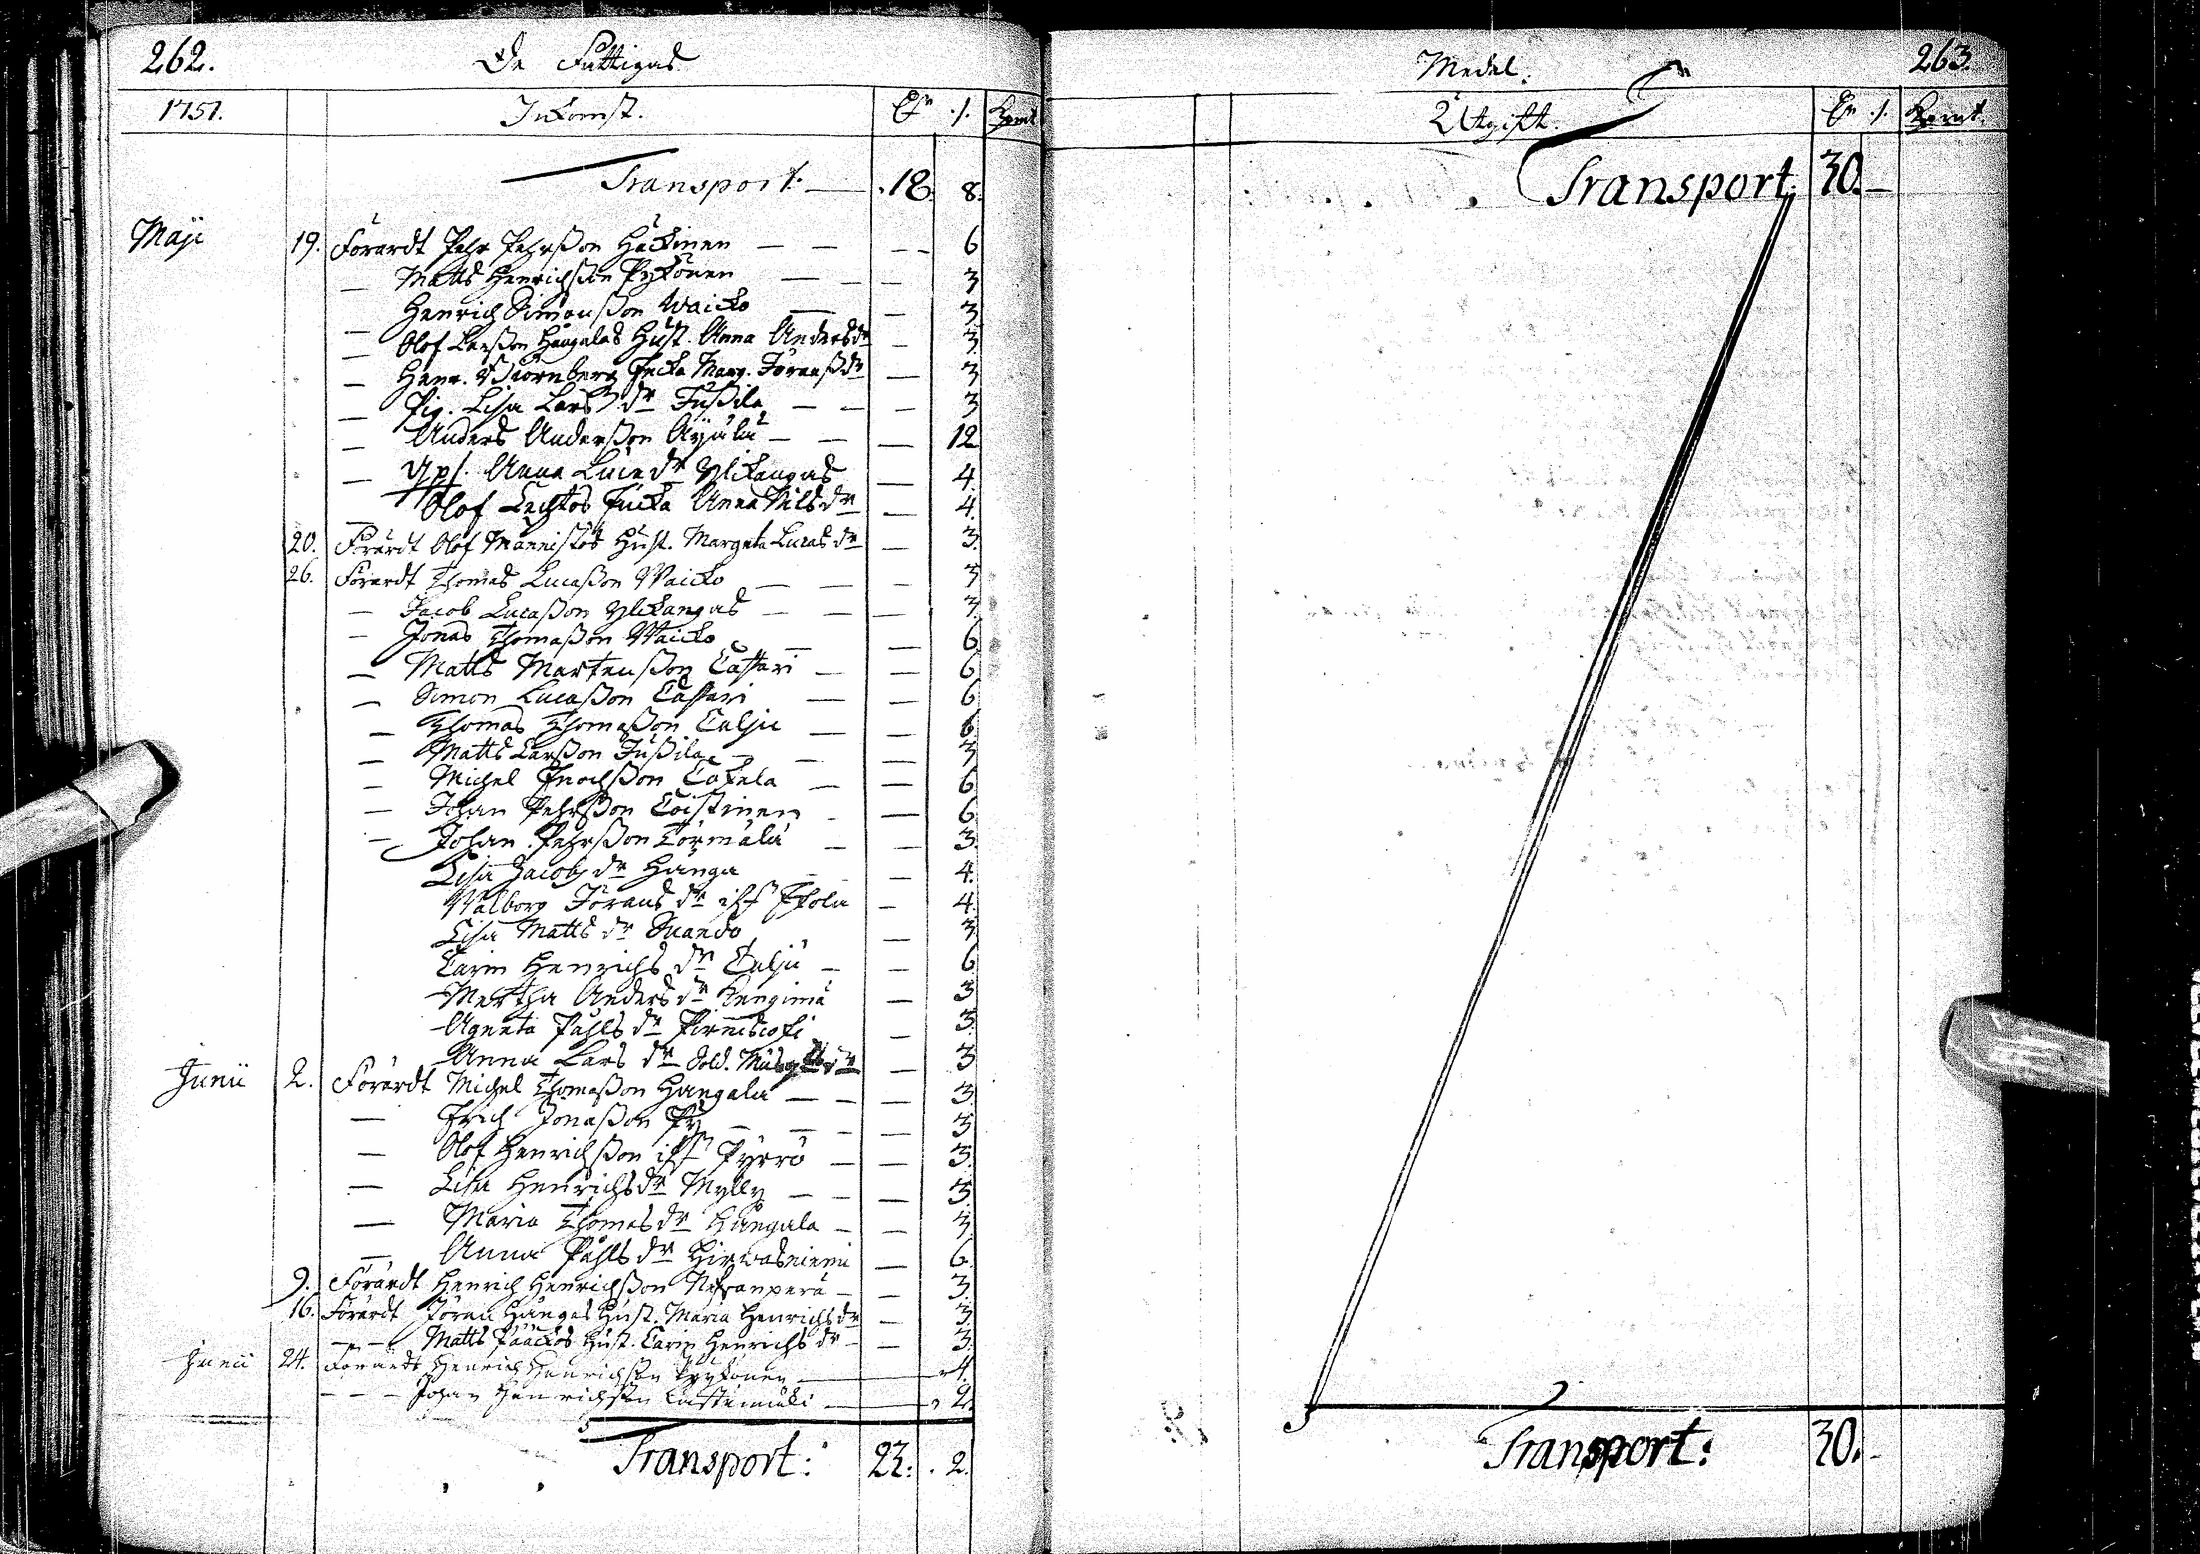 262.
De Fattigas
1751.
Inkomst.
Transport: — 18. 8.
Maji 19. Förärdt Pehr Pehrsson Häckinen — — — 6
— Matts Henrichsson Pykönen — — — 3
— Henrich Simonsson Waicko — — 3
— Olof Larsson Hangalas Hust. Anna Andersdr — 3
— Henr. Biörnbergs Encka Marg. Jöransdr — 3
— Pig. Lisa Larsdr Jussila — — — 3
— Anders Andersson Äyälä — — — 12
— Anna Lucedr Ylikangas — 4.
Olof Lechtos Encka Anna Nilsdr — 4.
20. Förärdt Olof Mannistos Hust. Margeta Lucasdr — 3.
26. Förärdt Thomas Lucasson Waicko — — — 3
— Jacob Lucasson Ylikangas — — — 3.
— Jonas Thomasson Waicko — — 6
— Matts Mårtensson Cassari — — 6
— Simon Lucasson Cassari — — 6
— Thomas Thomasson Calju — — 6.
— Matts Larsson Jussila — — — 3
— Michel Enochsson Cokela — — 6
— Johan Pehrsson Coistinen — — 6
— Johan Pehrsson Törmälä — — 3.
Lisa Jacobsdr Hanga — — 4.
Walborg Jöransdr — 4.
Lisa Mattsdr Suando — 3
Carin Henrichsdr Calju — — 6
Mertha Andersdr Kengimä — 3
Agneta Påhlsdr — 3.
Anna Larsdr Sold. — 3
Junii 2. Förärdt Michel Thomasson Hangala — — — 3
— Erich Jonasson Py — — — — 3
— Olof Henrichsson Pyörrö — — 3.
— Lisa Henrichsdr Mylly — — — 3.
— Maria Thomasdr Hangala — — 3
— Anna Påhlsdr Hirwasniemi — 6
9. Förärdt Henrich Henrichsson — — 3.
16. Förärdt Jöran Hangas Hust. Maria Henrichsdr — 3.
— — Matts Pääckös Hust. Carin Henrichsdr — — 3.
Junii 24. Förärdt Henrich Henrichsson Pyykönen — 4.
— — — Johan Henrichsson — 2.
Transport: 23: . 2.
Medel.
263.
Utgift.
Transport: 30. —
Transport: 30. —